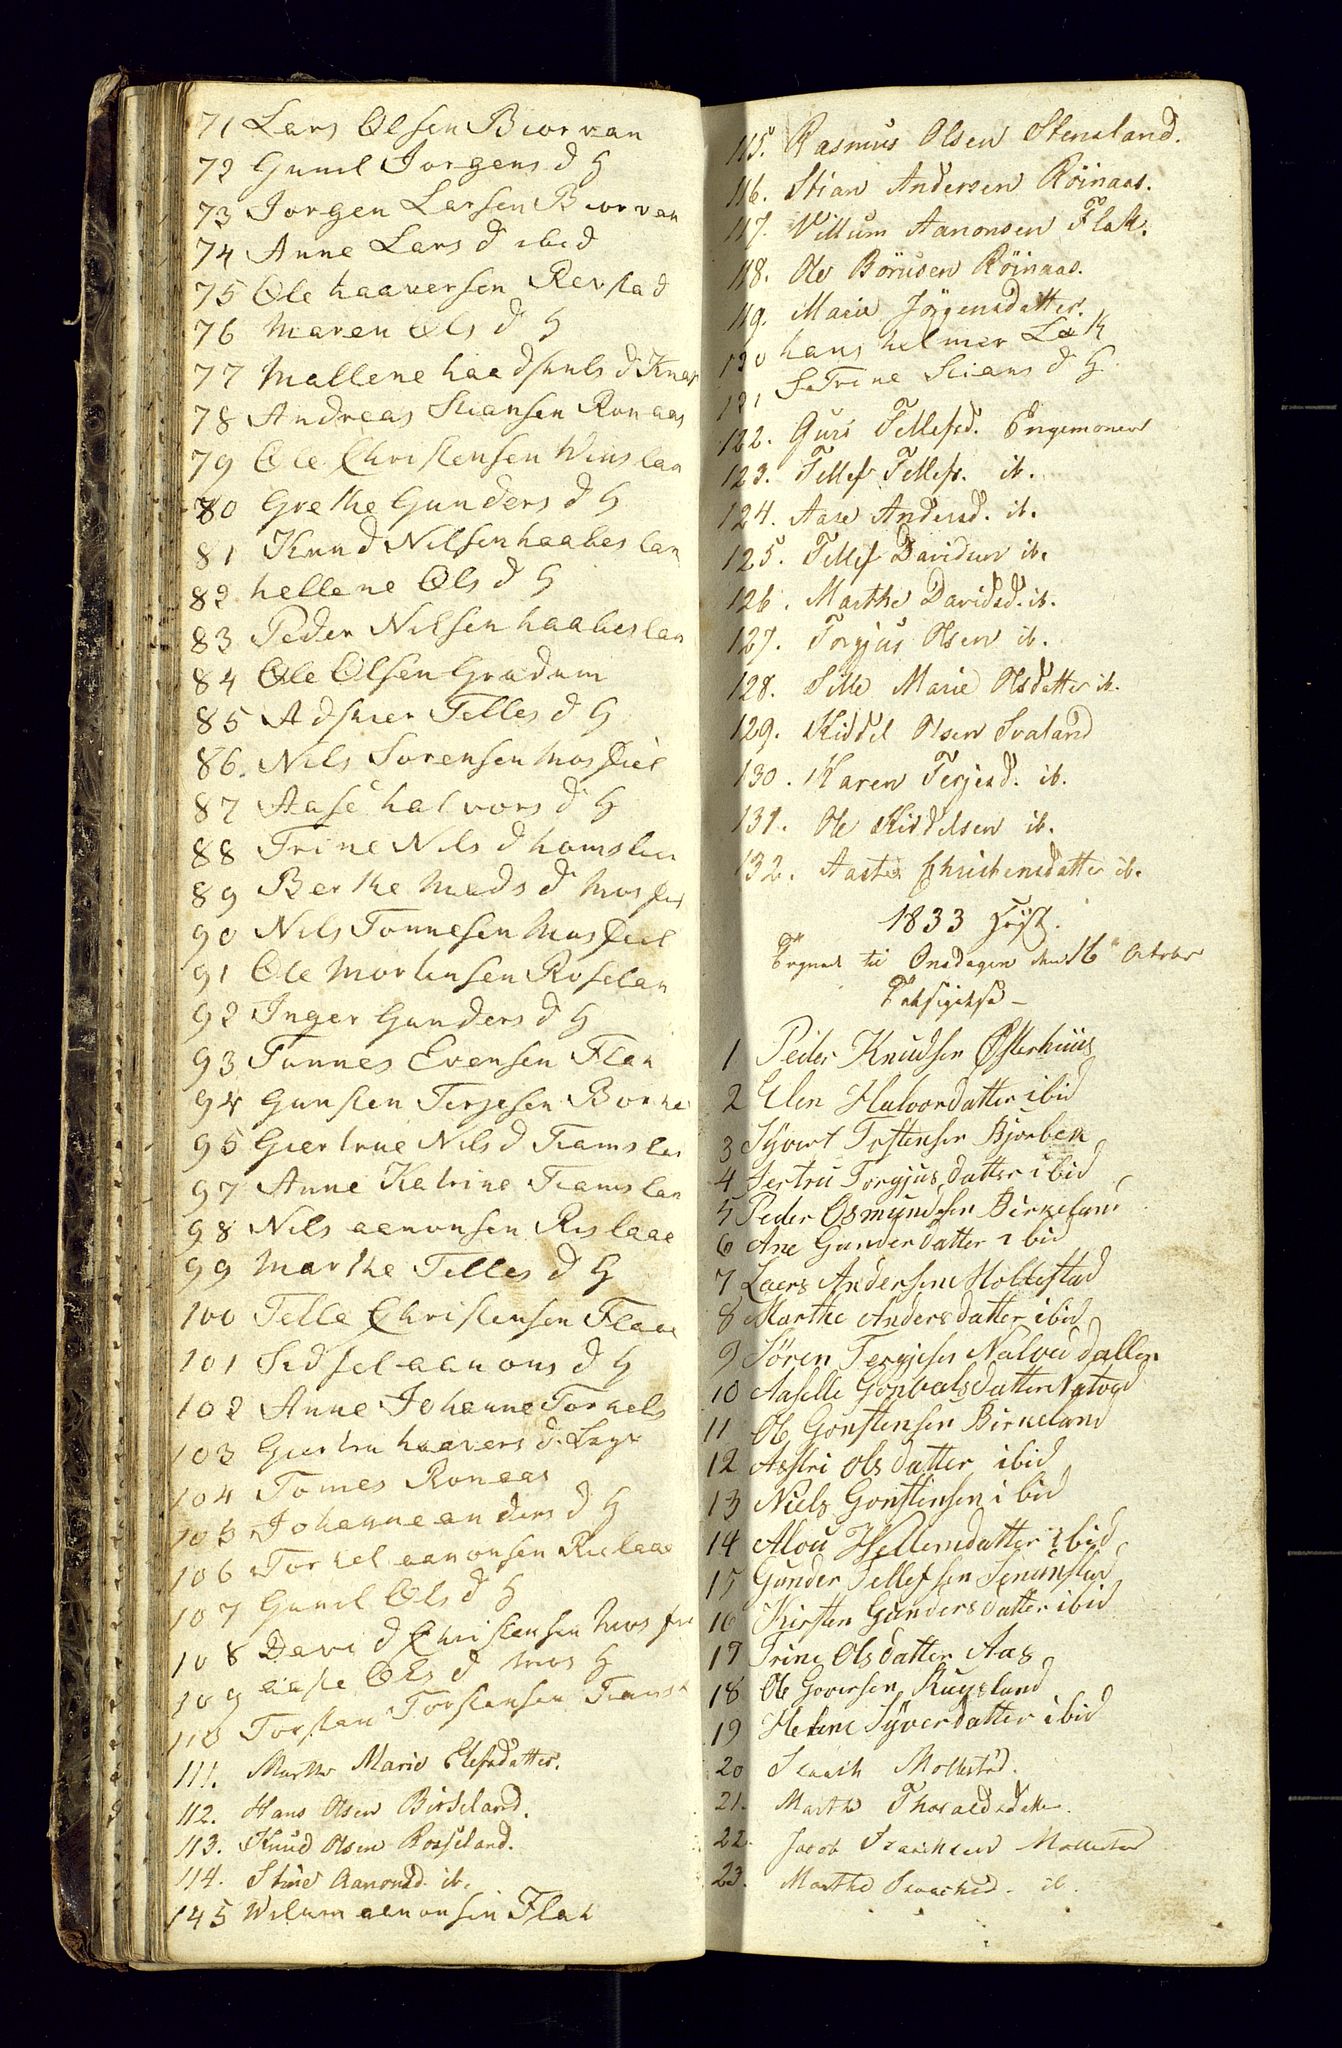 71 Lars Olsen Biorvan
72 Gunil Jorgens d H
73 Jorgen Larsen Biorvan
74 Anne Lars d ibid
75 Ole haaversen Revstad
76 Maren Ols d H
77 Mallene haadskuls d Knar
78 Andreas Stiansen Ronaas
79 Ole Christensen Winslan
80 Grethe Gunders d H
81 Knud Nilsen haabeslan
82 hellene Ols d H
83 Peder Nilsen haabeslan
84 Ole Olsen Gradum
85 Adskier Telles d H
86. Nils Sorensen Mosfiel
87 Aase halvors d H
88 Trine Nils d homslan
89 Berthe Mads d Mosfiel
90 Nils Tonnesen Mosfiel
91 Ole Mortensen Roselan
92 Inger Gunders d H
93 Tonnes Evensen Flak
94 Gunsten Terjesen Birke
95 Giertrue Nils d Tiamslan
97 Anne Katrine Tiamslan
98 Nils aanonsen Rislaae
99 Marthe Telles d H
100 Telle Christensen Flaae
101 Sidsel aanons d H
102 Anne Johanne Torkels
103 Giertru haavers d
104 Tomes Ronaas
105 Johanne anders d H
106 Torkel aanonsen Rislaae
107 Gunil Ols d H
108 David Christensen Mosfie
109 Ols d Mos H
110 Torstan Torstensen Tiams
111. Marthe Marie Elefsdatter.
112. Hans Olsen Birkeland.
113. Knud Olsen Rosseland.
114. Stine Aanonsd. ib.
145 Wilum aanonsen Flak
115. Rasmus Olsen Stensland.
116. Stian Andersen Röinaas.
117. Villum Aanonsen Flak.
118. Ole Börresen Röinaas.
119. Marie Jörgensdatter.
120 hans helmer
121 Trine Stians d H
122. Guri Tellefsd. Engemoner
123. Tellef Tellefs. ib.
124. Aase Andersd. ib.
125. Tellef Davidsen ib.
126. Marthe Davidsd. ib.
127. Torjus Olsen ib.
128. Sille Marie Olsdatter ib.
129. Kiddel Olsen Svaland
130. Karen Terjesd. ib.
131. Ole Kiddelsen ib.
132. Aaste Christensdatter ib.
1833 Höst.
Tegnet til Onsdagen den 16 October
Taksigelse –
1 Peder Knudsen Østerhuus
2 Elen Halvordatter ibid
3 Syvert Tostensen Bjorbek
4 Jertru Torgjusdatter ibid
5 Peder Osmundsen Birkeland
6 Ane Gunderdatter ibid
7 Laers Andersen Mollestad
8 Marthe Andersdatter ibid
9 Sören Tergjesen Natvedallen
10 Aaselle Gonvalsdatter Natved
11 Ole Gonstensen Birkeland
12 Asstri Olsdatter ibid
13 Niels Gonstensen ibid
14 Alou Wellemdatter ibid
15 Gunder Tellefsen Senumstad
16 Kirsten Gundersdatter ibid
17 Trine Olsdatter Aas
18 Ole Goversen Rugsland
19 Helene Syverdatter ibid
20 Isaach Mollestad.
21. Marthe Thoraldsdatter.
22. Jacob Isaachsen Mollestad
23. Marthe Isaachsd. ib.